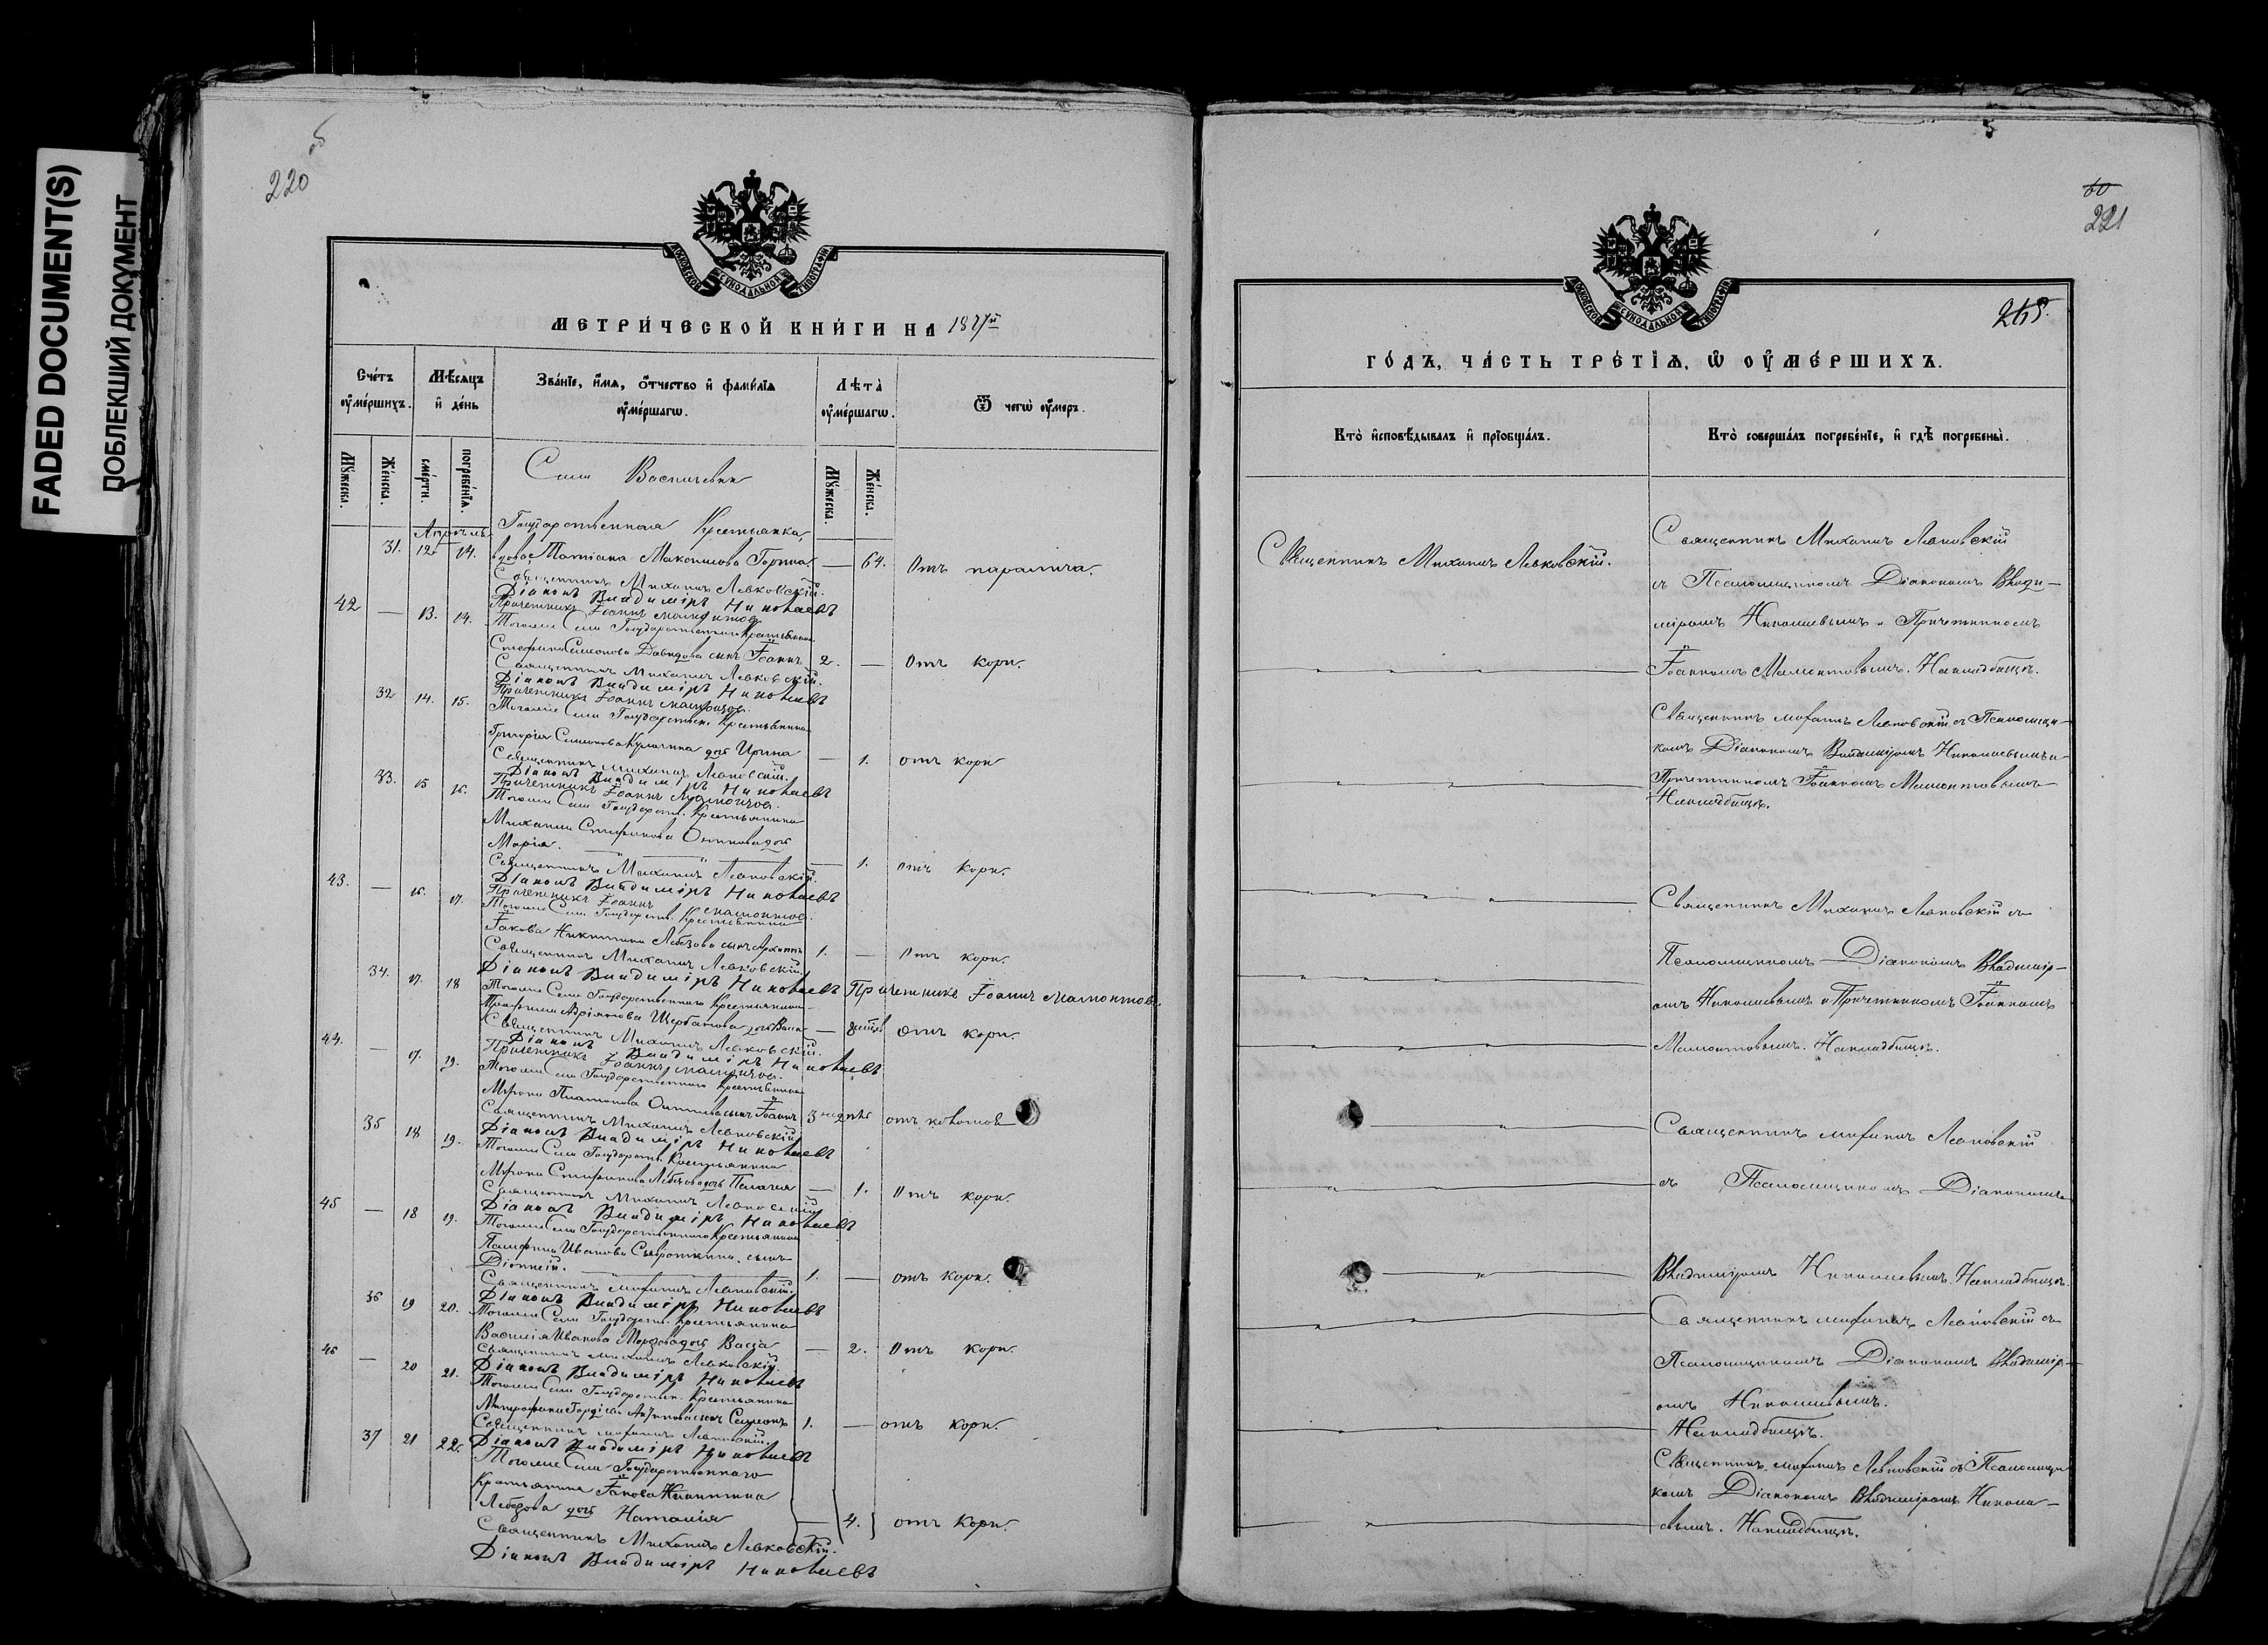 FADED DOCUMENT(S)
ПОБЛЕКШИЙ ДОКУМЕНТ
220
МОСКОВСКОЙ СѴНОДАЛЬНОЙ ТИПОГРАФІИ
МЕТРИ́ЧЕСКОЙ КНИ́ГИ НА
Сче́тъ оу҆ме́ршихъ.
Мѣ́сяцъ и҆ де́нь
Зва́нїе, и҆́мя, ѻ҆́тчество и҆ фами́лїя оу҆ме́ршагѡ.
Лѣта̀ оу҆ме́ршагѡ.
Ѿ чегѡ̀ оу҆́меръ.
Му́жеска.
Же́нска.
сме́рти.
погребе́нїя.
Му́жеска.
Же́нска.
Апрѣль
Государственная Крестьянка,
31. 12 14. вдова Татіана Максимова — 64. Отъ паралича.
Священникъ Михаилъ Левковскій.
Діаконъ Владиміръ Николаевъ
Причетникъ Іоаннъ Мамонтовъ
42 — 13. 14. Тогоже Села Государственнаго Крестьянина
Стефана Симонова Давыдова сынъ Іоаннъ 2. — Отъ кори.
Священникъ Михаилъ Левковскій.
Діаконъ Владиміръ Николаевъ
Причетникъ Іоаннъ Мамонтовъ.
32 14. 15. Тогоже Села Государствен. Крестьянина
Григорія Симонова дочь Ирина — 1. отъ кори
Священникъ Михаилъ Левковскій.
Діаконъ Владиміръ Николаевъ
Причетникъ Іоаннъ Мамонтовъ.
33. 15 16. Тогоже Села Государств. Крестьянина
Михаила дочь
Марія. — 1. Отъ кори.
Священникъ Михаилъ Левковскій.
Діаконъ Владиміръ Николаевъ
Причетникъ Іоаннъ Мамонтовъ.
43. — 16. 17. Тогоже Села Государств. Крестьянина
Іакова Никитина Лебезова сынъ 1. — Отъ кори.
Священникъ Михаилъ Левковскій.
Діаконъ Владиміръ Николаевъ Причетникъ Іоаннъ Мамонтовъ
34. 17. 18 Тогоже Села Государственнаго Крестьянина
Адріанова Щербакова дочь — отъ кори.
Священникъ Михаилъ Левковскій.
Діаконъ Владиміръ Николаевъ
Причетникъ Іоаннъ Мамонтовъ.
44. — 17. 19. Тогоже Села Государственнаго Крестьянина
Мирона Платонова сынъ Іоаннъ 3 отъ
Священникъ Михаилъ Левковскій
Діаконъ Владиміръ Николаевъ
35 18 19. Тогоже Села Государств. Крестьянина
Мирона дочь Пелагея — 1. Отъ кори.
Священникъ Михаилъ Левковскій
Діаконъ Владиміръ Николаевъ
45 — 18 19. Тогоже Села Государственнаго Крестьянина
Памфила Иванова Сыроткина сынъ
1. — отъ кори.
Священникъ Михаилъ Левковскій.
Діаконъ Владиміръ Николаевъ
36 19 20. Тогоже Села Государств. Крестьянина
Василія Иванова дочь Васса — 2. Отъ кори.
Священникъ Михаилъ Левковскій.
Діаконъ Владиміръ Николаевъ
46 — 20 21. Тогоже Села Государствен. Крестьянина
Митрофана сынъ Симеонъ 1. — отъ кори.
Священникъ Михаилъ Левковскій.
Діаконъ Владиміръ Николаевъ
37 21 22. Тогоже Села Государственнаго
Крестьянина Іакова Никитина
Лебезова дочь Наталія — 4. отъ Кори.
Священникъ Михаилъ Левковскій.
Діаконъ Владиміръ Николаевъ
60
221
265.
МОСКОВСКОЙ СѴНОДАЛЬНОЙ ТИПОГРАФІИ
ГО́ДЪ, ЧА́СТЬ ТРЕ́ТЇЯ, Ѡ҆ ОУ҆МЕ́РШИХЪ.
Кто̀ и҆сповѣ́дывалъ и҆ прїобща́лъ.
Кто̀ соверша́лъ погребе́нїе, и҆ гдѣ̀ погребены̀.
Священникъ Михаилъ Левковскій.
Священникъ Михаилъ Левковскій
съ Псаломщикомъ Діакономъ Влади-
міромъ Николаевымъ и Причетникомъ
Іоанномъ Мамонтовымъ. На кладбищѣ.
Священникъ Михаилъ Левковскій съ Псаломщи-
комъ Діакономъ Владиміромъ Николаевымъ и
Причетникомъ Іоанномъ Мамонтовымъ
На кладбищѣ.
Священникъ Михаилъ Левковскій съ
Псаломщикомъ Діакономъ Владимір-
омъ Николаевымъ и Причетникомъ Іоанномъ
Мамонтовымъ. На кладбищѣ.
Священникъ Михаилъ Левковскій
съ Псаломщикомъ Діакономъ
Владиміромъ Николаевымъ. На кладбищѣ.
Священникъ Михаилъ Левковскій съ
Псаломщикомъ Діакономъ Владимір-
омъ Николаевымъ.
На кладбищѣ.
Священникъ Михаилъ Левковскій съ Псаломщи
комъ Діакономъ Владиміромъ Никола-
евымъ. На кладбищѣ.